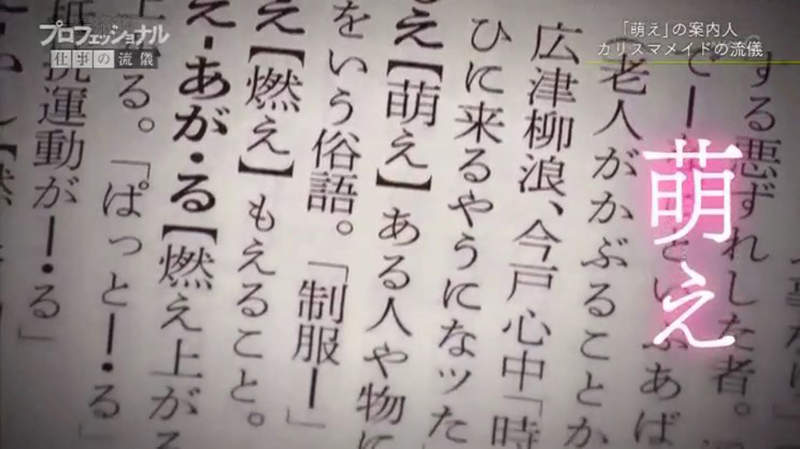 プロフェッショナル
仕事の流儀
「萌え」の案内人
カリスマメイドの流儀
萌え
する悪ずれした者。
といふあば
老人がかぶることか
広津柳浪、今戸心中「時
ひに来るやうになッた
え【萌え】ある人や物に
をいう俗語。「制服―」
え【燃え】もえること。
え‐あが・る【燃え上がる
る。「ぱっと―・る」
抵抗運動が―・る」